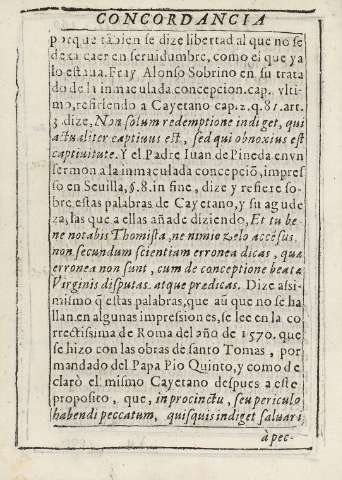 CONCORDANCIA
porque tãbien se dize libertad al que no se
dexa caer en seruidumbre, como el que ya
lo estaua. Fray Alonso Sobrino en su trata
do de la inmaculada concepcion. cap. vlti-
mo, refiriendo a Cayetano cap. 2. q. 81. art.
3. dize, Non solum redemptione indiget, qui
actualiter captiuus est, sed qui obnoxius est
captiuitute. Y el Padre Iuan de Pineda en vn
sermon a la inmaculada concepciõ, impres
so en Seuilla, §. 8. in fine, dize y refiere so-
bre estas palabras de Cayetano, y su agude
za, las que a ellas añade diziendo, Et tu be
ne notabis Thomista, ne nimio zelo accesus,
non secundum scientiam erronea dicas, quæ
erronea non sunt, cum de conceptione beatæ
Virginis disputas, atque predicas. Dize assi-
mismo q̃ estas palabras, que aũ que no se ha
llan en algunas impressiones, se lee en la co
rrectissima de Roma del año de 1570. que
se hizo con las obras de santo Tomas, por
mandado del Papa Pio Quinto, y como de
clarò el mismo Cayetano despues a este
proposito, que, in procinctu, seu periculo
habendi peccatum, quisquis indiget saluari,
à pec-